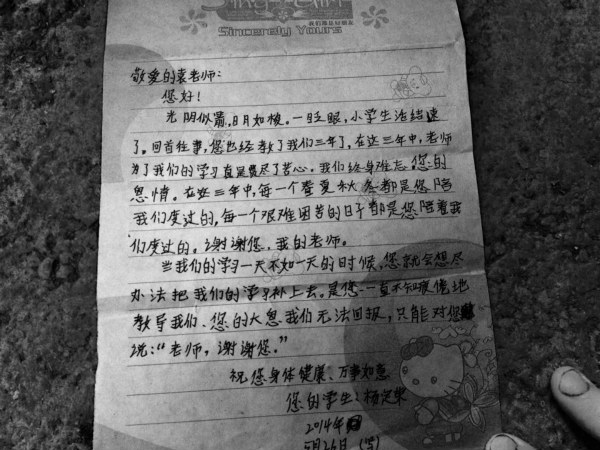 Sincerely Yours
敬爱的袁老师:
您好!
光阴似箭,日月如梭。一眨眼,小学生活结速
了。回首往事,您也经教了我们三年了,在这三年中,老师
为了我们的学习真是费尽了苦心。我们终身难忘您的
恩情。在这三年中,每一个春夏秋冬都是您陪
我们度过的,每一个艰难困苦的日子都是您陪着我
们度过的。谢谢您,我的老师。
当我们的学习一天不如一天的时候,您就会想尽
办法把我们的学习补上去。是您一直不知疲倦地
教导我们、您的大恩我们无法回报,只能对您
说:“老师,谢谢您。”
祝您身体健康、万事如意
您的学生:杨
2014年
5月26日(写)